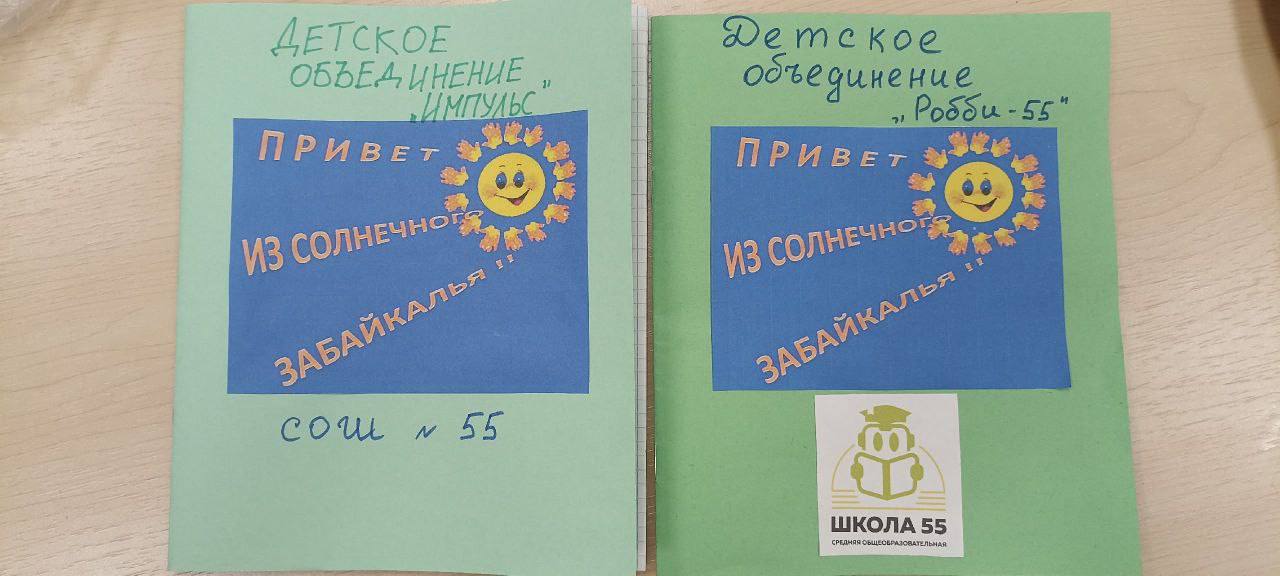 ДЕТСКОЕ
ОБЪЕДИНЕНИЕ
„ИМПУЛЬС"
ПРИВЕТ
ИЗ СОЛНЕЧНОГО
ЗАБАЙКАЛЬЯ !!
СОШ № 55
Детское
объединение
„Робби-55"
ПРИВЕТ
ИЗ СОЛНЕЧНОГО
ЗАБАЙКАЛЬЯ !!
ШКОЛА 55
СРЕДНЯЯ ОБЩЕОБРАЗОВАТЕЛЬНАЯ